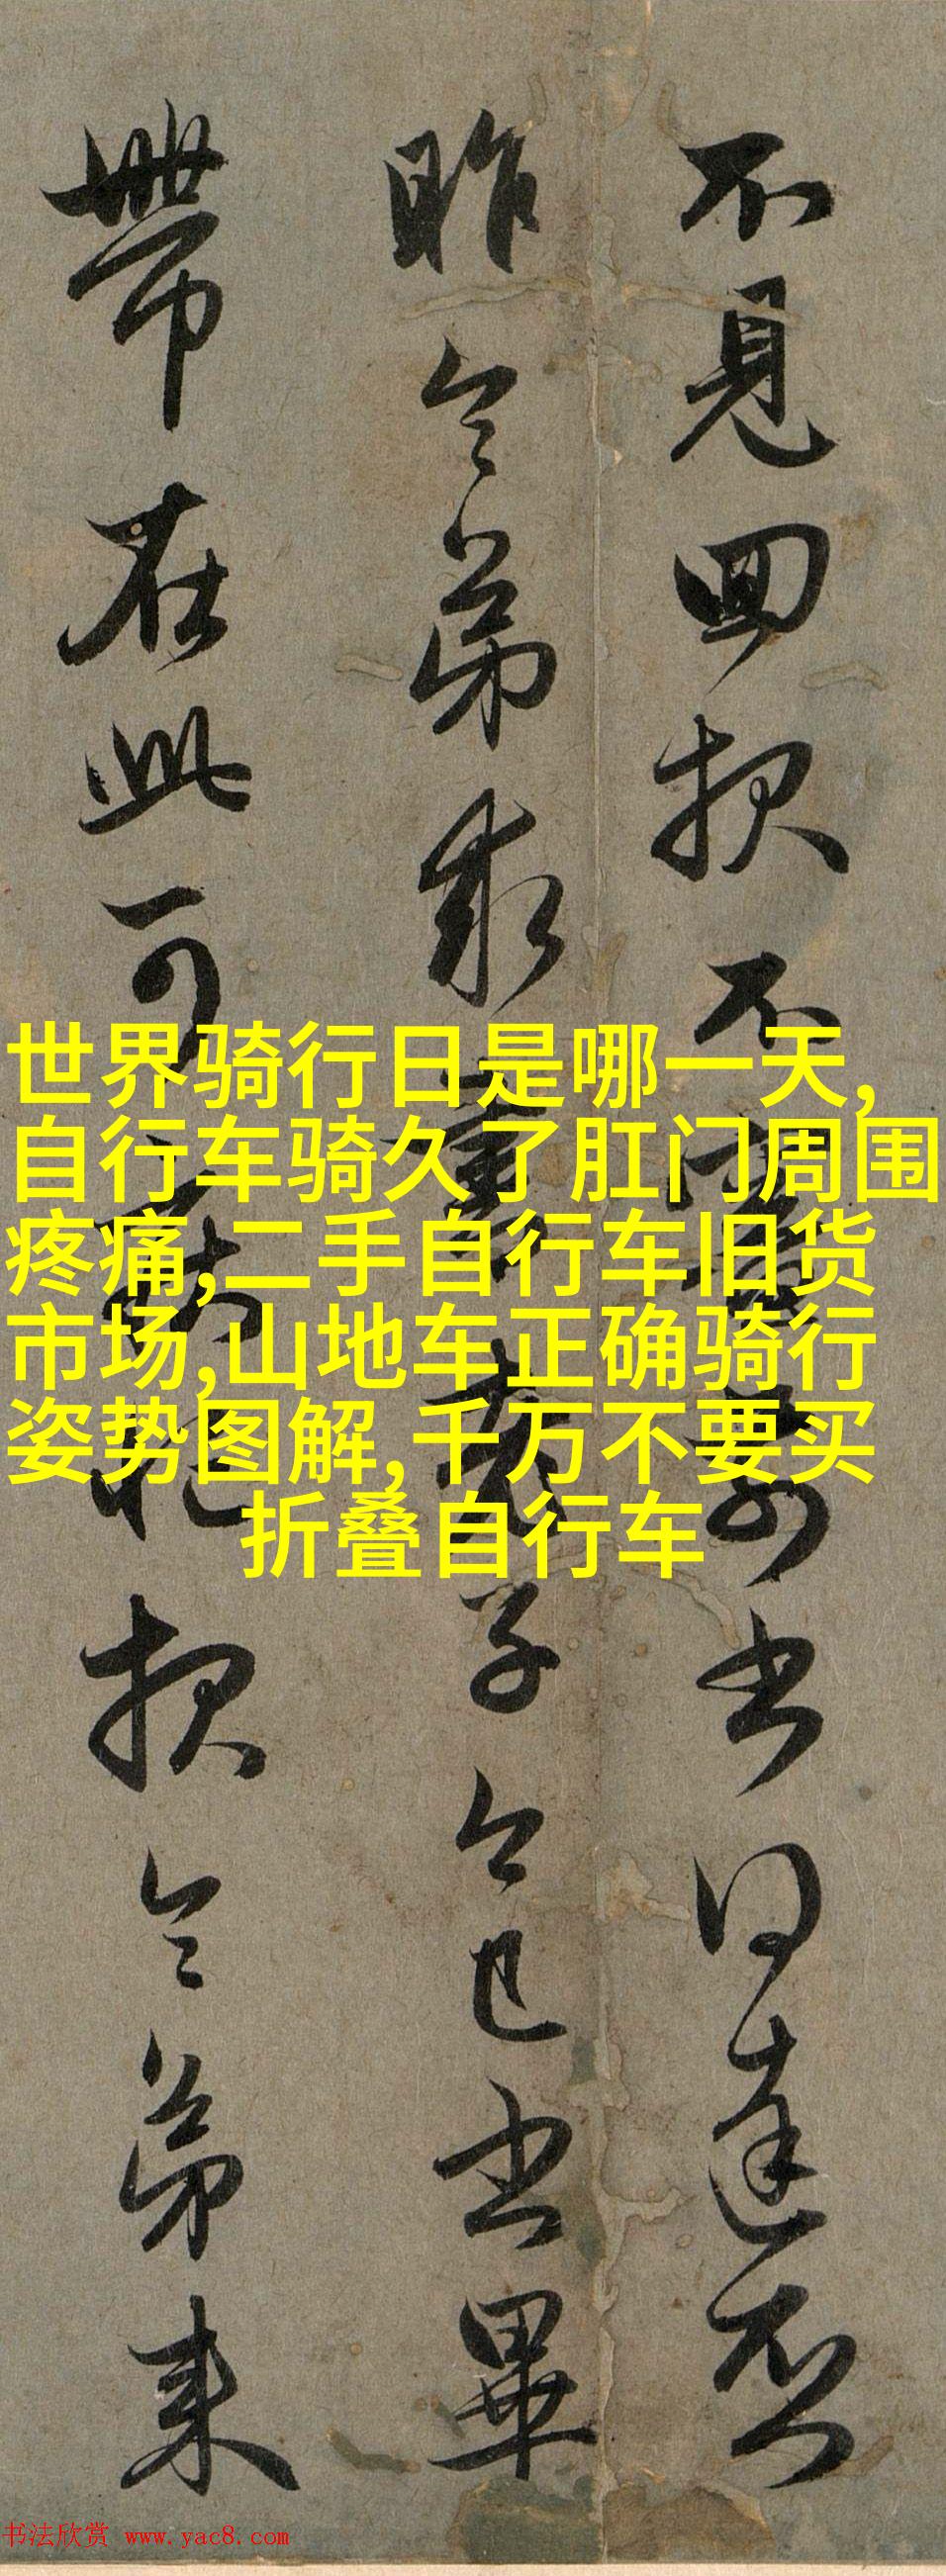 不見囬報不審前書得達否
昨令弟求書子今已書畢
帶在此可報令弟来
世界骑行日是哪一天,
自行车骑久了肛门周围
疼痛,二手自行车旧货
市场,山地车正确骑行
姿势图解,千万不要买
折叠自行车
书法欣赏 www.yac8.com